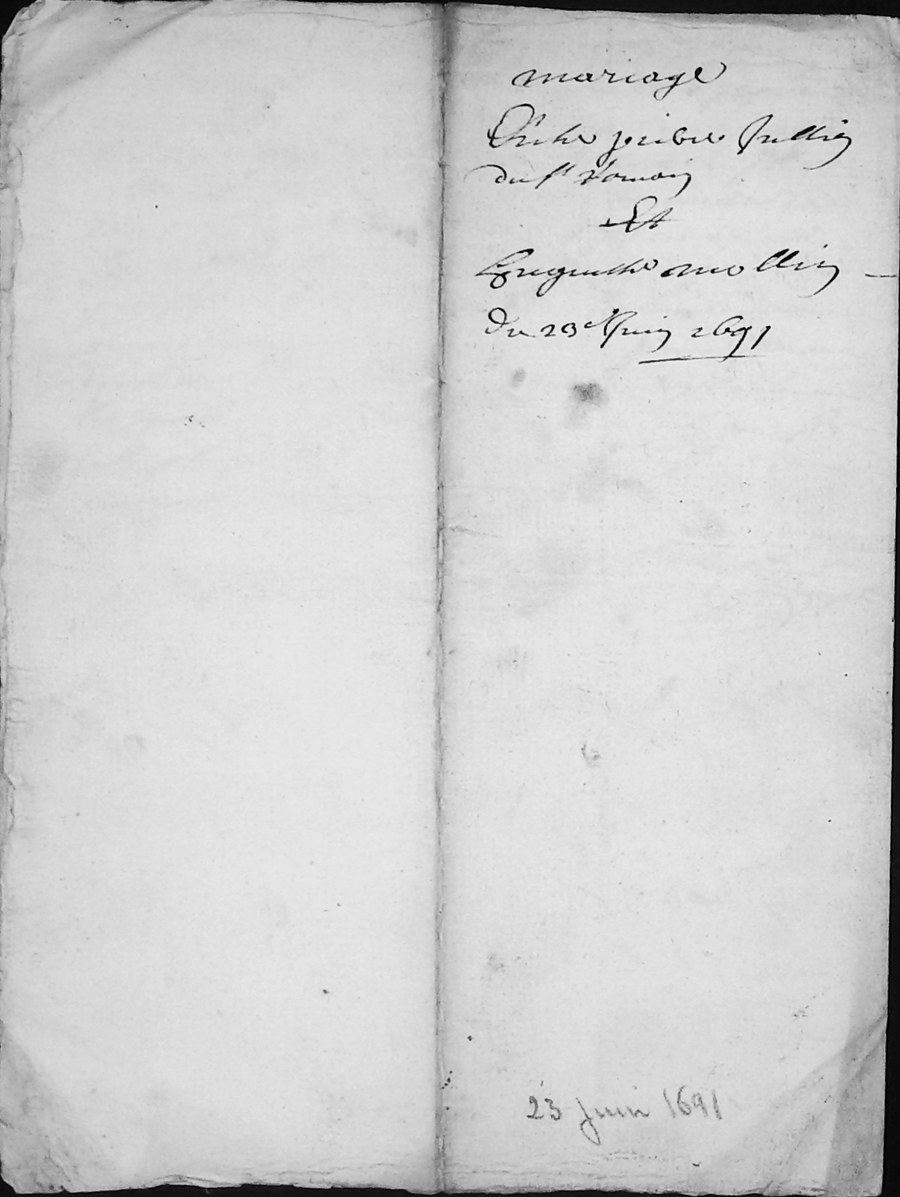 mariage
Entre pierre Jullin
du st Romain
Et
mollin
Du 23e Juin 1691
23 juin 1691